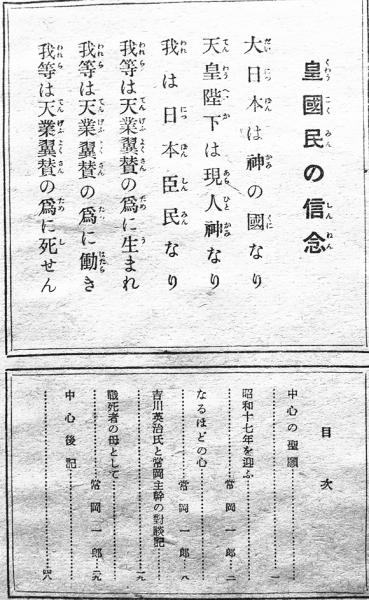 皇國民の信念
大日本は神の國なり
天皇陛下は現人神なり
我は日本臣民なり
我等は天業翼賛の爲に生まれ
我等は天業翼賛の爲に働き
我等は天業翼賛の爲に死せん
目次
中心の聖願……一
昭和十七年を迎ふ……常岡一郎…二
なるほどの心……常岡一郎…八
吉川英治氏と常岡主幹の對談記……一九
戰死者の母として……常岡一郎…二九
中心後記……四八